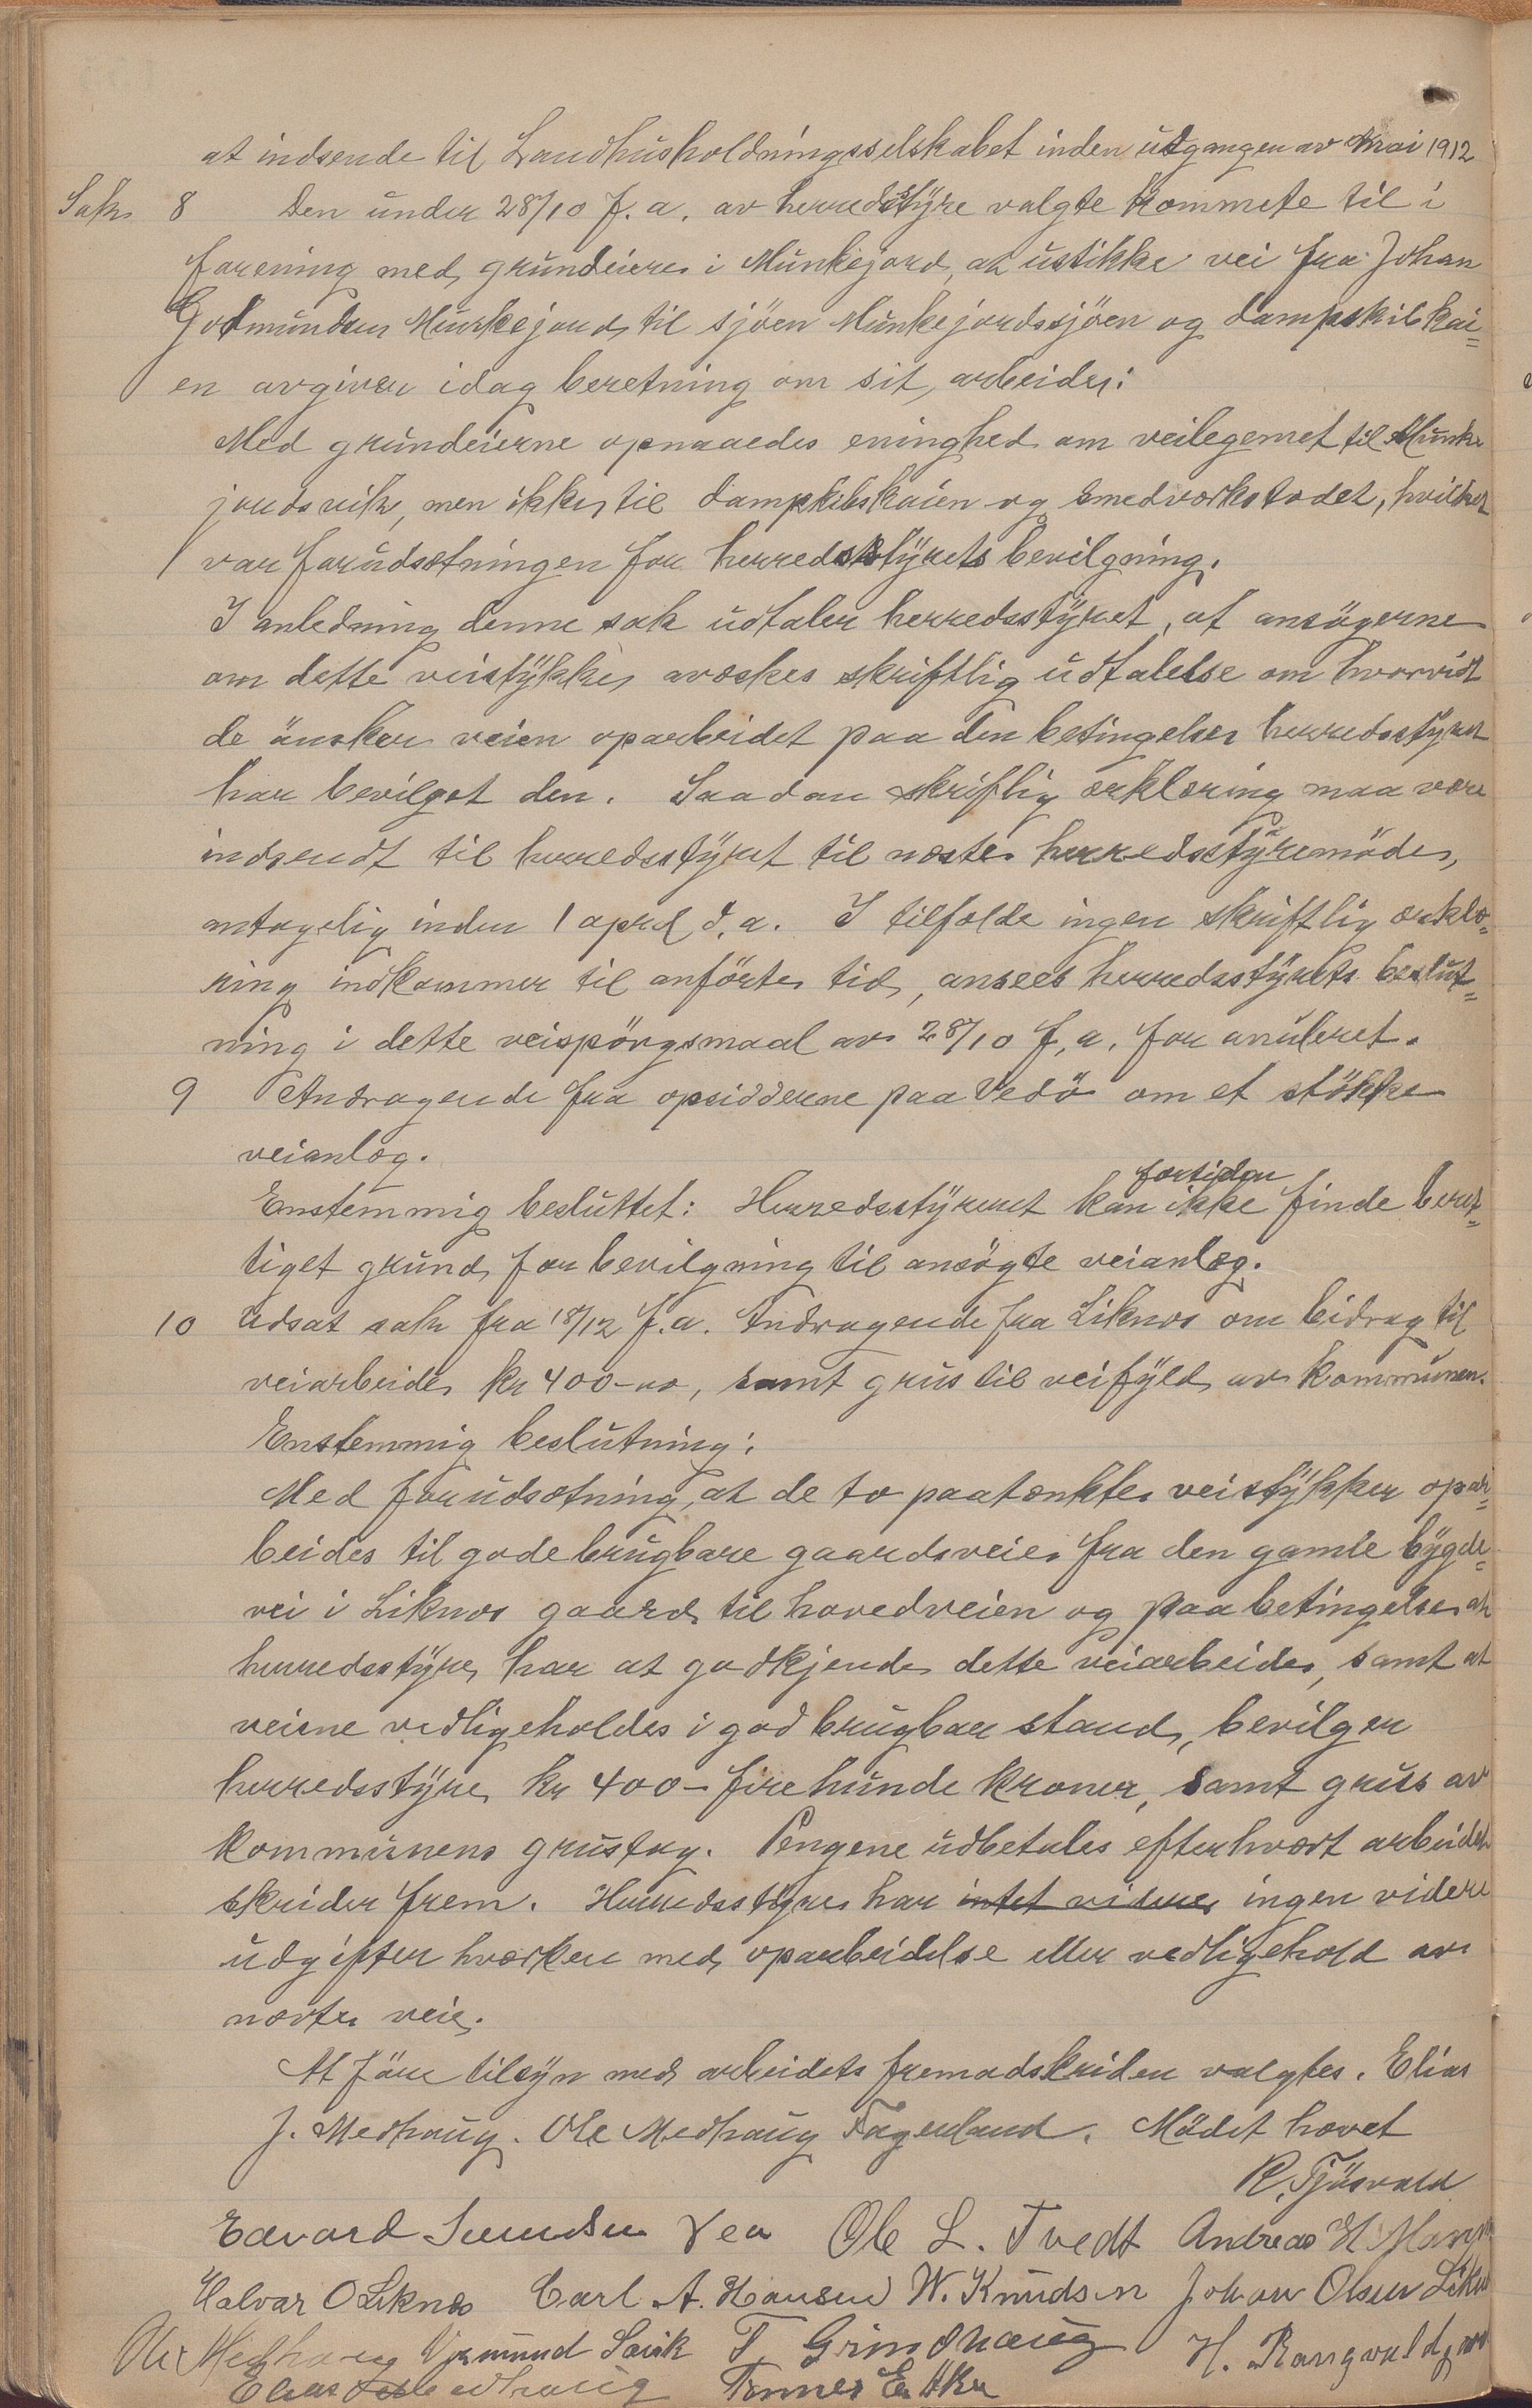 at indsende til Landhusholdningsselskabet inden udgangen av mai 1912
Sak 8 Den under 28/10 f. a. av herredsstyre valgte kommete til i
forening med grundeiere i Munkejord, at ustikke vei fra Johan
Godmundsen Munkejord til sjöen Munkejordssjöen og dampskibkai=
en avgiver idag beretning om sit arbeide:
Med grundeierne opnaaedes eninghed om veilegemet til Munke
jordsvik, men ikke til dampskibskaien og smedværkstedet, hvilket
var forudsætningen for herredsstyrets bevilgning.
I anledning denne sak udtaler herredsstyret, at ansögerne
om dette veistykke avæskes skriftlig udtalelse om hvorvidt
de önsker veien oparbeidet paa den betingelse herredsstyret
har bevilget den. Saadan skriflig erklæring maa være
indsendt til herredsstyret til næste herredsstyremöde,
antagelig inden 1 april d. a. I tilfælde ingen skriftlig erklæ=
ring indkommer til anförte tid, ansees herredsstyrets beslut=
ning i dette veispörgsmaal av 28/10 f. a. for anuleret.
9 Andragende fra opsidderne paa Vedö om et stökke
veianlæg.
fortiden
Enstemmig besluttet: Herredsstyreret kan ikke finde beret=
tiget grund for bevilgning til ansögte veianlæg.
10 Udsat sak fra 18/12 f. a. Andragende fra Liknes om bidrag til
veiarbeide kr 400-00, samt grus til veifyld av kommunen.
Enstemmig beslutning:
Med forudsætning, at de to paatænkte veistykker opar=
beides til gode brugbare gaardsveie fra den gamle bygde=
vei i Liknes gaard til hovedveien og paa betingelse at
herredsstyre har at godkjende dette veiarbeide, samt at
veiene vedligeholdes i god brugbar stand, bevilger
herredsstyre kr 400- firehunde kroner, samt grus av
kommunens grustag. Pengene udbetales efterhvært arbeidet
skrider frem. Herredsstyre har intet videre ingen videre
udgifter hværken med oparbeidelse eller vedligehold av
nævte veie.
At före tilsyn med arbeidets fremadskriden valgtes. Elias
J. Medhaug. Ole Medhaug Fagerland. Mödet hævet
K. Tjösvold
Edvard Vea Ole L. Tvedt Andreas H.
Halvar O Liknes Carl A. Hansen W. Knudsen Johan Olsen Likn
Ole Medhaug Sevik T. Grindhaug H. Rangvaldsen
Elias Medhaug